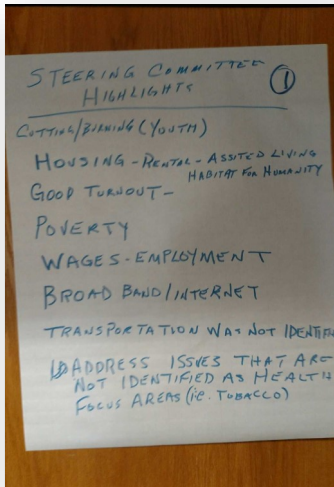 STEERING COMMITTEE
HIGHLIGHTS
1
CUTTING/BURNING (YOUTH)
HOUSING - RENTAL - ASSITED LIVING
HABITAT FOR HUMANITY
GOOD TURNOUT -
POVERTY
WAGES - EMPLOYMENT
BROAD BAND/INTERNET
TRANSPORTATION WAS NOT IDENTIFI
ADDRESS ISSUES THAT ARE
NOT IDENTIFIED AS HEALTH
FOCUS AREAS (i.e. TOBACCO)